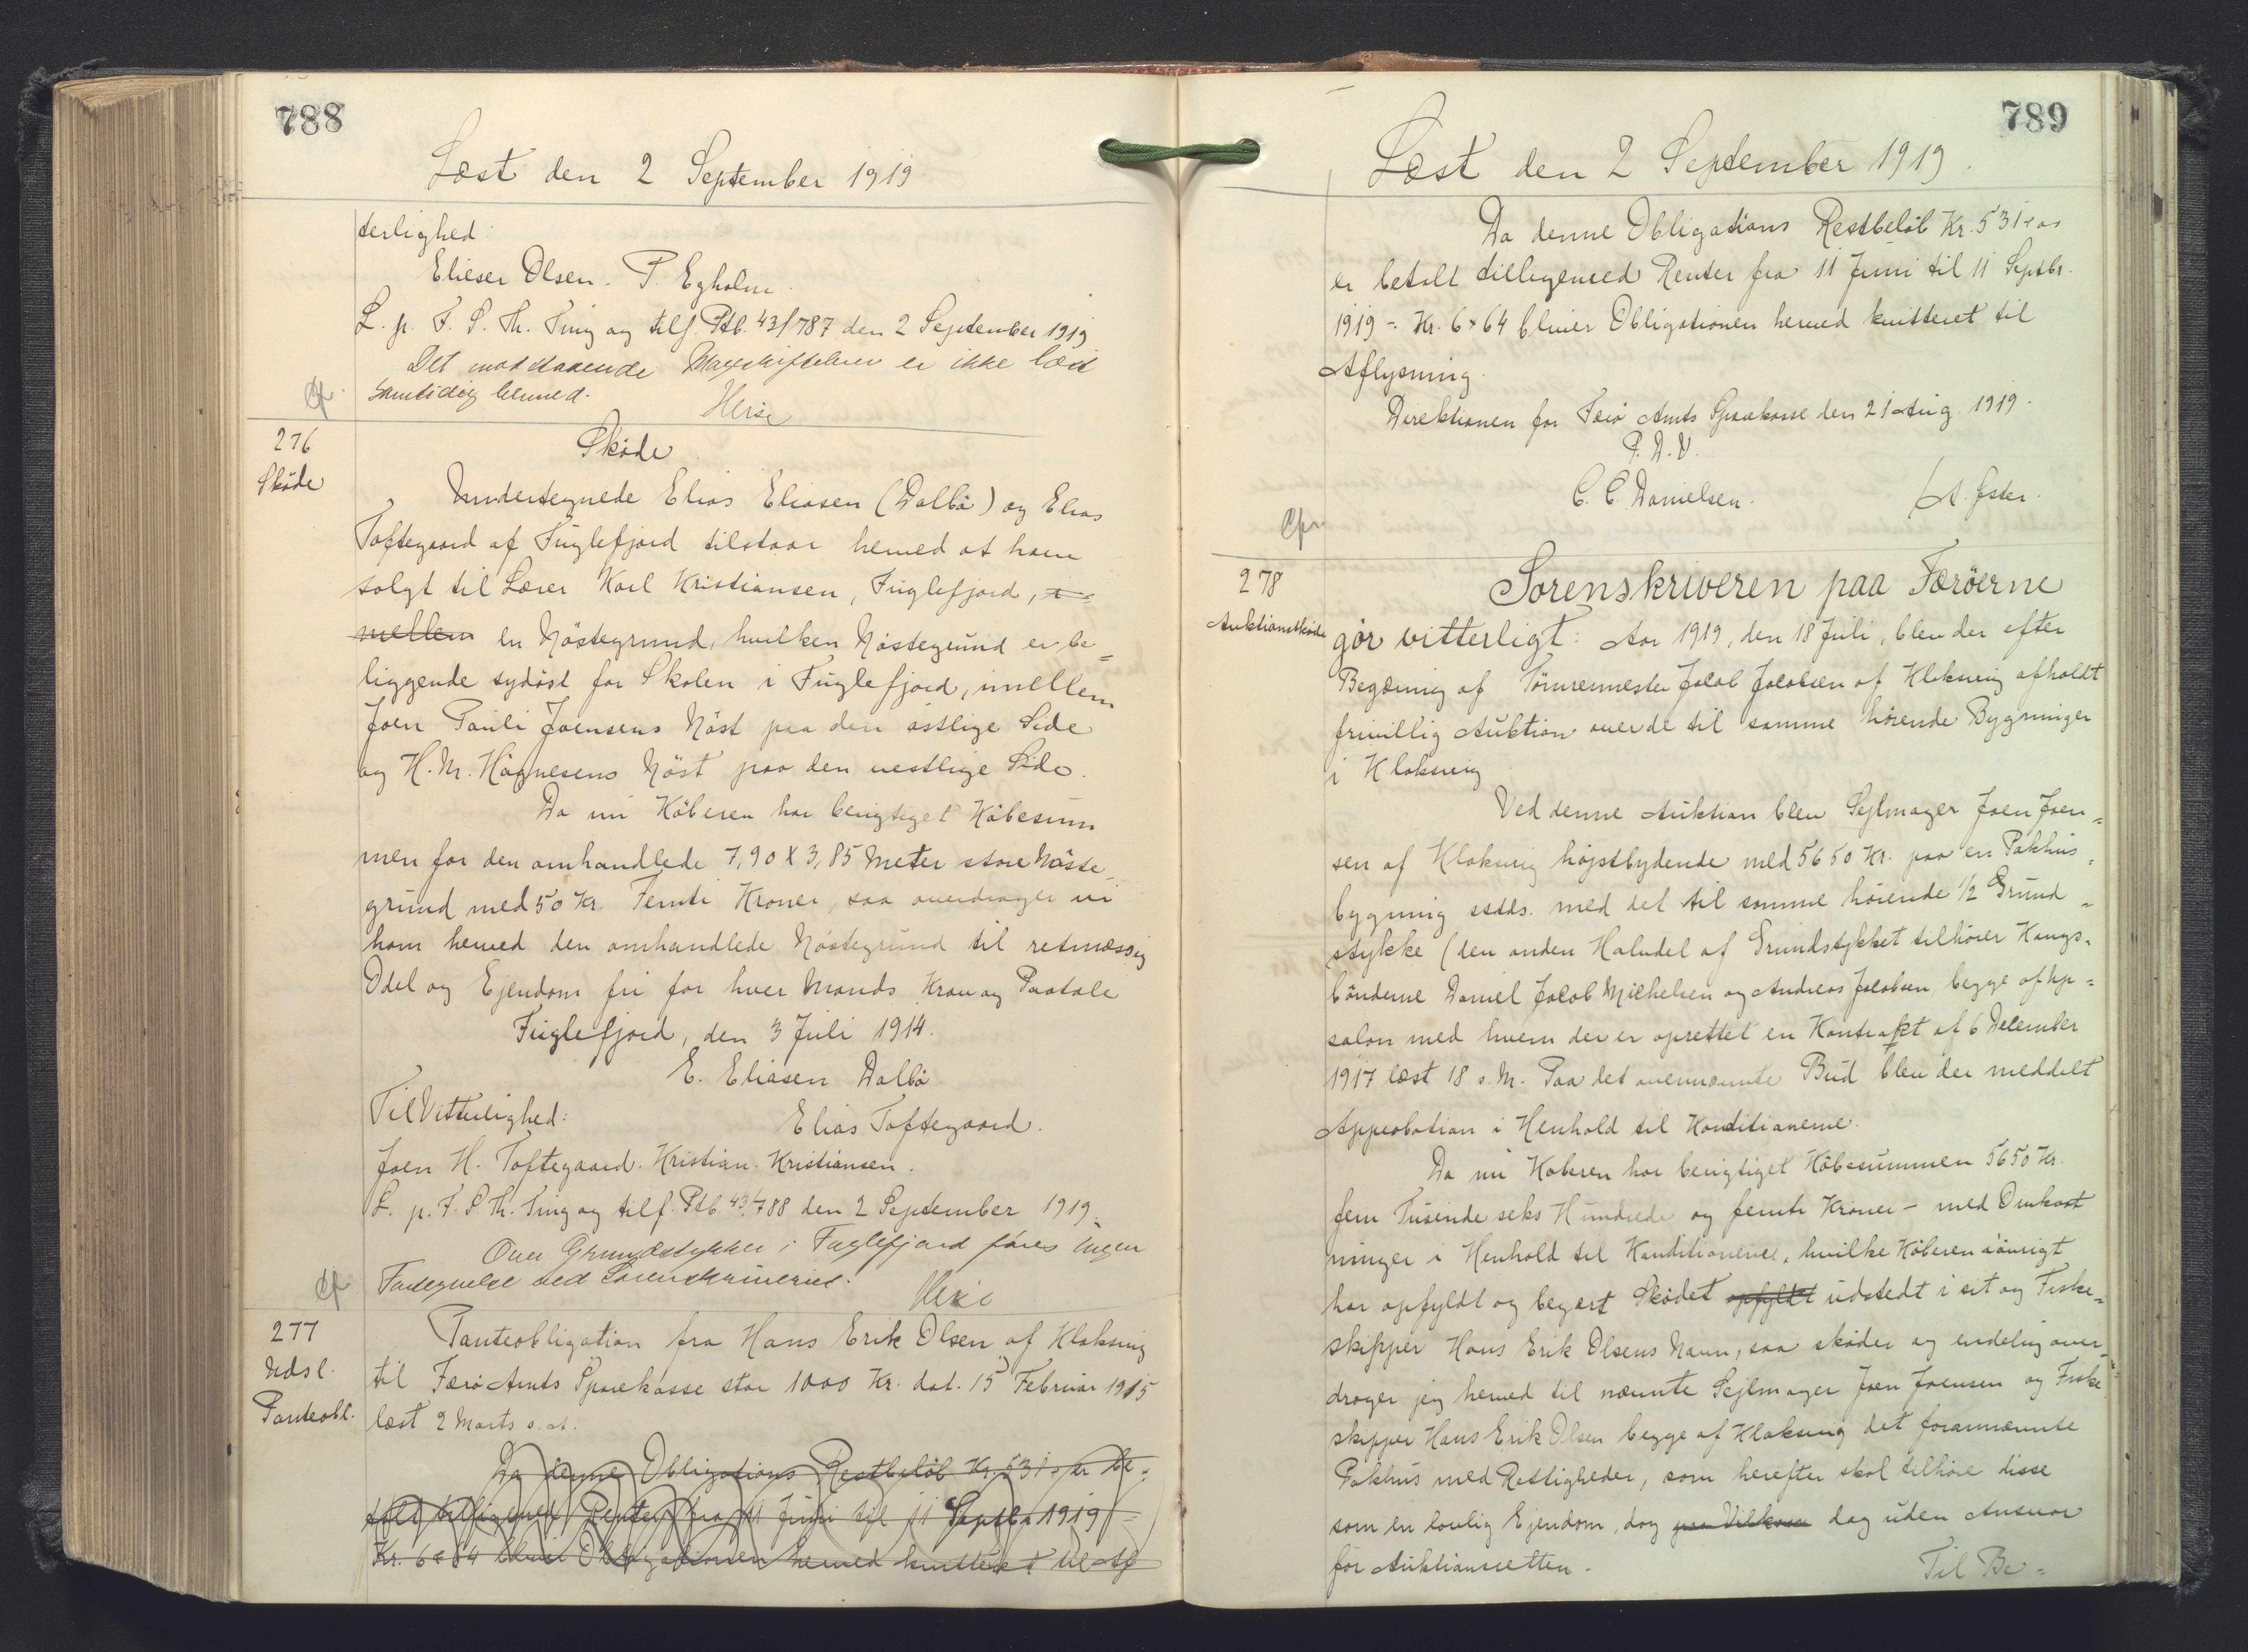 788
Læst den 2 September 1919
terlighed:
Elieser Olsen. P. Egholm.
L. p. F. S. Th. Ting og tilf. Ptb. 43/787 den 2 September 1919
Det modstaaende Mageskiftebrev er ikke læst
samtidig hermed.
Cfr.
276
Sköde
Sköde
Undertegnede Elias Eliasen (Dalbö) og Elias
Toftegaard af Fuglefjord tilstaar herved at have
solgt til Lærer Karl Kristiansen, Fuglefjord,
mellem en Nöstegrund, hvilken Nöstegrund er be=
liggende sydöst for Skolen i Fuglefjord, imellem
Joen Pauli Joensens Nöst paa den östlige Side
og H. M. Högnesens Nöst paa den vestlige Side.
Da nu Köberen har berigtiget Köbesum
men for den omhandlede 7,90 X 3,85 Meter store Nöste=
grund med 50 Kr. Femti Kroner, saa overdrager vi
ham herved den omhandlede Nöstegrund til retmæssig
Odel og Ejendom fri for hver Mands Krav og Paatale
Fuglefjord, den 3 Juli 1914.
E. Eliasen Dalbö.
Til Vitterlighed:
Elias Toftegaard.
Joen H. Toftegaard. Kristian Kristiansen.
L. p. F. S. Th. Ting og tilf. Ptb. 43/788 den 2 September 1919.
Over Grundstykker i Fuglefjord föres ingen
Fortegnelse ved Sorenskriveriet.
Cfr
277
Udsl.
Panteobl.
Panteobligation fra Hans Erik Olsen af Klaksvig
til Færö Amts Sparekasse stor 1000 Kr. dat. 15 Februar 1915
læst 2 Marts s. A.
Da denne Obligations Restbelöb Kr. 531 er be=
talt tilligemed Renter fra 11 Juni til 11 Septbr 1919 =
Kr. 6 64 bliver Obligationen herved kvitteret til Af
789
Læst den 2 September 1919.
Da denne Obligations Restbelöb Kr. 531
er betalt tilligemed Renter fra 11 Juni til 11 Septbr.
1919 = Kr. 6 64 bliver Obligationen herved kvitteret til
Aflysning.
Direktionen for Færö Amts Sparekasse den 21 Aug. 1919.
P. D. V.
C. C. Danielsen.
Cfr
278
Auktionsköde
Sorenskriveren paa Færöerne
gör vitterligt: Aar 1919, den 18 Juli, blev der efter
Begæring af Tömrermester Jacob Jacobsen af Klaksvig afholdt
frivillig Auktion over de til samme hörende Bygninger
i Klaksvig
Ved denne Auktion blev Sejlmager Joen Joen=
sen af Klaksvig höjstbydende med 5650 Kr. paa en Pakhus=
bygning sstds. med det til samme hörende 1/2 Grund=
stykke (den anden Halvdel af Grundstykket tilhörer Kongs=
bönderne Daniel Jacob Michelsen og Andreas Jacobsen, begge af Hu=
salon med hvem der er oprettet en Kontrakt af 6 December
1917 læst 18 s. M. Paa det ovennævnte Bud blev der meddelt
Approbation i Henhold til Konditionerne.
Da nu Köberen har berigtiget Köbesummen 5650 Kr.
fem Tusinde seks Hundrede og femti Kroner - med Omkost
ninger i Henhold til Konditionerne, hvilke Köberen iövrigt
har opfyldt og begært Sködet opfyldt udstedt i sit og Fiske=
skipper Hans Erik Olsens Navn, saa sköder og endelig over=
drager jeg herved til nævnte Sejlmager Joen Joensen og Fiske=
skipper Hans Erik Olsen begge af Klaksvig det forannævnte
Pakhus med Rettigheder, som herefter skal tilhöre disse
som en lovlig Ejendom, dog paa Vilkaar dog uden Ansvar
for Auktionsretten.
Til Be=